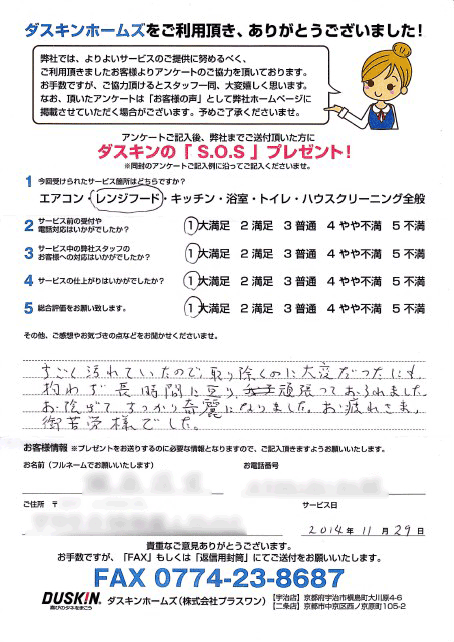 ダスキンホームズをご利用頂き、ありがとうございました！
弊社では、よりよいサービスのご提供に努めるべく、
ご利用頂きましたお客様よりアンケートのご協力を頂いております。
お手数ですが、ご協力頂けるとスタッフ一同、大変嬉しく思います。
なお、頂いたアンケートは「お客様の声」として弊社ホームページに
掲載させていただく場合がございます。予めご了承くださいませ。
アンケートご記入後、弊社までご送付頂いた方に
ダスキンの「 S.O.S 」プレゼント！
※同封のアンケートご記入例に沿ってご記入くださいませ。
1 今回受けられたサービス箇所はどちらですか？
エアコン・レンジフード・キッチン・浴室・トイレ・ハウスクリーニング全般
2 サービス前の受付や
電話対応はいかがでしたか？ 1 大満足 2 満足 3 普通 4 やや不満 5 不満
3 サービス中の弊社スタッフの
お客様への対応はいかがでしたか？ 1 大満足 2 満足 3 普通 4 やや不満 5 不満
4 サービスの仕上がりはいかがでしたか？ 1 大満足 2 満足 3 普通 4 やや不満 5 不満
5 総合評価をお願い致します。 1 大満足 2 満足 3 普通 4 やや不満 5 不満
その他、ご感想やお気づきの点などをお聞かせくださいませ。
すごく汚れていたので、取り除くのに大変だったにも
拘わず長時間に亘り、頑張っておられました。
お陰げで、すっかり綺麗になりました。お疲れさま、
御苦労様でした。
お客様情報 ※プレゼントをお送りするのに必要な情報となりますので、ご記入頂けますようお願いいたします。
お名前（フルネームでお願いいたします） お電話番号
ご住所 〒 サービス日
2014年 11月 29日
貴重なご意見ありがとうございます。
お手数ですが、「FAX」もしくは「返信用封筒」にてご送付をお願いいたします。
FAX 0774-23-8687
DUSKIN 喜びのタネをまこう ダスキンホームズ（株式会社プラスワン） 【宇治店】京都府宇治市槇島町大川原4-6
【二条店】京都市中京区西ノ京原町105-2